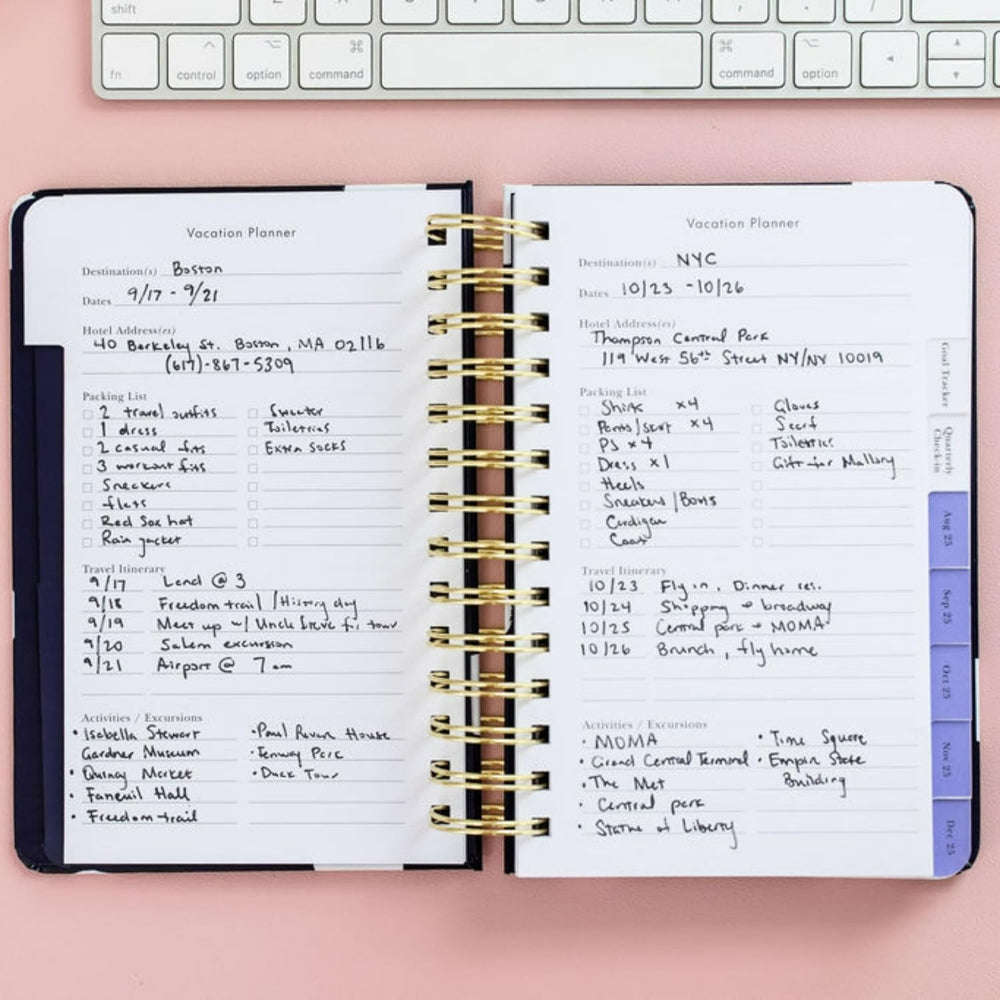 shift
Z
fn
control
option
command
command
option
Vacation Planner
Destination(s) Boston
Dates 9/17 - 9/21
Hotel Address(es)
40 Berkeley St. Boston, MA 02116
(617)-867-5309
Packing List
2 travel outfits
1 dress
2 casual fits
3 workout fits
Sneakers
flats
Red Sox hat
Rain jacket
Sweater
Toiletries
Extra socks
Travel Itinerary
9/17 Land @ 3
9/18 Freedom trail / History day
9/19 Meet up w/ Uncle Steve for tour
9/20 Salem excursion
9/21 Airport @ 7am
Activities / Excursions
• Isabella Stewart
Gardner Museum
• Quincy Market
• Faneuil Hall
• Freedom trail
• Paul Revere House
• Fenway Park
• Duck Tour
Vacation Planner
Destination(s) NYC
Dates 10/23 - 10/26
Hotel Address(es)
Thompson Central Park
119 West 56th Street NY/NY 10019
Packing List
Shirts x4
Pants/skirt x4
PJs x4
Dress x1
Heels
Sneakers / Boots
Cardigan
Coat
Gloves
Scarf
Toiletries
Gift for Mallory
Travel Itinerary
10/23 Fly in, Dinner res.
10/24 Shopping + broadway
10/25 Central park + MOMA
10/26 Brunch, fly home
Activities / Excursions
• MOMA
• Grand Central Terminal
• The Met
• Central park
• Statue of Liberty
• Time Square
• Empire State
Building
Goal Tracker
Quarterly
Check-in
Aug 25
Sep 25
Oct 25
Nov 25
Dec 25